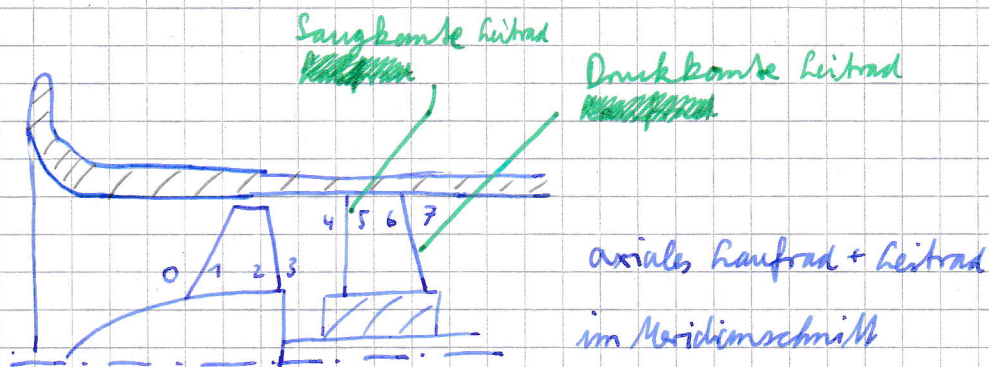 Saugkante Leitrad
Druckkante Leitrad
4 5 6 7
0 1 2 3
axiales Laufrad + Leitrad
im Meridianschnitt